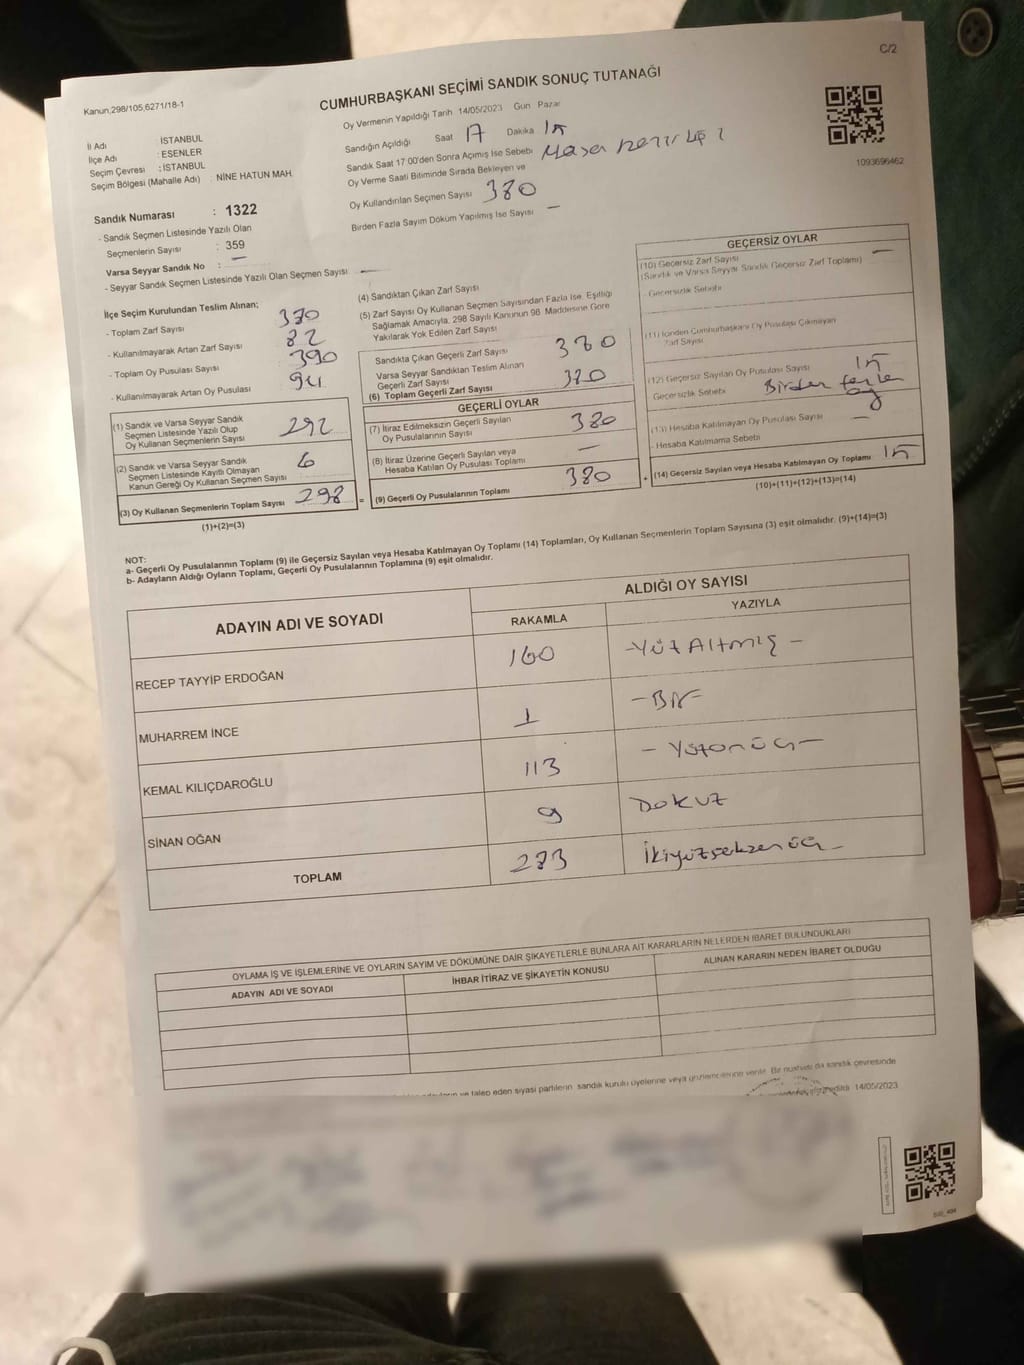 C/2
Kanun,298/105,6271/18-1
CUMHURBAŞKANI SEÇİMİ SANDIK SONUÇ TUTANAĞI
Oy Vermenin Yapıldığı Tarih 14/05/2023 Gün Pazar
İl Adı İSTANBUL
İlçe Adı : ESENLER
Seçim Çevresi : İSTANBUL
Seçim Bölgesi (Mahalle Adı) : NİNE HATUN MAH.
Sandığın Açıldığı Saat 17 Dakika
Sandık Saat 17 00'den Sonra Açımış İse Sebebi
Oy Verme Saati Bitiminde Sırada Bekleyen ve
Oy Kullandırılan Seçmen Sayısı 380
Birden Fazla Sayım Döküm Yapılmış İse Sayısı —
1093696462
Sandık Numarası : 1322
- Sandık Seçmen Listesinde Yazılı Olan
Seçmenlerin Sayısı : 359
Varsa Seyyar Sandık No : —
- Seyyar Sandık Seçmen Listesinde Yazılı Olan Seçmen Sayısı —
İlçe Seçim Kurulundan Teslim Alınan;
- Toplam Zarf Sayısı 370
- Kullanılmayarak Artan Zarf Sayısı 82
- Toplam Oy Pusulası Sayısı 390
- Kullanılmayarak Artan Oy Pusulası
(1) Sandık ve Varsa Seyyar Sandık
Seçmen Listesinde Yazılı Olup
Oy Kullanan Seçmenlerin Sayısı 292
(2) Sandık ve Varsa Seyyar Sandık
Seçmen Listesinde Kayıtlı Olmayan
Kanun Gereği Oy Kullanan Seçmen Sayısı 6
(3) Oy Kullanan Seçmenlerin Toplam Sayısı 298 =
(1)+(2)=(3)
(4) Sandıktan Çıkan Zarf Sayısı
(5) Zarf Sayısı Oy Kullanan Seçmen Sayısından Fazla İse, Eşitliği
Sağlamak Amacıyla, 298 Sayılı Kanunun 98. Maddesine Göre
Yakılarak Yok Edilen Zarf Sayısı
Sandıkta Çıkan Geçerli Zarf Sayısı 380
Varsa Seyyar Sandıktan Teslim Alınan
Geçerli Zarf Sayısı
(6) Toplam Geçerli Zarf Sayısı 380
GEÇERLİ OYLAR
(7) İtiraz Edilmeksizin Geçerli Sayılan
Oy Pusulalarının Sayısı 380
(8) İtiraz Üzerine Geçerli Sayılan veya
Hesaba Katılan Oy Pusulası Toplamı —
(9) Geçerli Oy Pusulalarının Toplamı 380 +
GEÇERSİZ OYLAR
(10) Geçersiz Zarf Sayısı —
(Sandık ve Varsa Seyyar Sandık Geçersiz Zarf Toplamı)
- Geçersizlik Sebebi
(11) İçinden Cumhurbaşkanı Oy Pusulası Çıkmayan
Zarf Sayısı
(12) Geçersiz Sayılan Oy Pusulası Sayısı
Geçersizlik Sebebi Birden fazla oy
(13) Hesaba Katılmayan Oy Pusulası Sayısı —
- Hesaba Katılmama Sebebi
(14) Geçersiz Sayılan veya Hesaba Katılmayan Oy Toplamı
(10)+(11)+(12)+(13)=(14)
NOT:
a- Geçerli Oy Pusulalarının Toplamı (9) ile Geçersiz Sayılan veya Hesaba Katılmayan Oy Toplamı (14) Toplamları, Oy Kullanan Seçmenlerin Toplam Sayısına (3) eşit olmalıdır. (9)+(14)=(3)
b- Adayların Aldığı Oyların Toplamı, Geçerli Oy Pusulalarının Toplamına (9) eşit olmalıdır.
ADAYIN ADI VE SOYADI
ALDIĞI OY SAYISI
RAKAMLA YAZIYLA
RECEP TAYYİP ERDOĞAN 160 - Yüz Altmış -
MUHARREM İNCE 1 - Bir -
KEMAL KILIÇDAROĞLU 113 - Yüzonüç -
SİNAN OĞAN 9 Dokuz
TOPLAM 273 İkiyüzseksenüç -
OYLAMA İŞ VE İŞLEMLERİNE VE OYLARIN SAYIM VE DÖKÜMÜNE DAİR ŞİKAYETLERLE BUNLARA AİT KARARLARIN NELERDEN İBARET BULUNDUKLARI
ADAYIN ADI VE SOYADI İHBAR İTİRAZ VE ŞİKAYETİN KONUSU ALINAN KARARIN NEDEN İBARET OLDUĞU
talep eden siyasi partilerin sandık kurulu üyelerine veya gözlemcilerine verilir. Bir nüshası da sandık çevresinde
14/05/2023